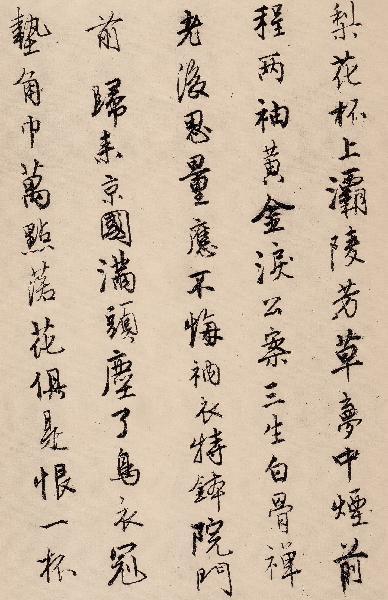 梨花杯上灞陵芳草夢中煙前
程兩袖黃金淚公案三生白骨禪
老後思量應不悔衲衣持鉢院門
前 歸來京國滿頭塵了烏衣冠
墊角巾萬點落花俱是恨一杯